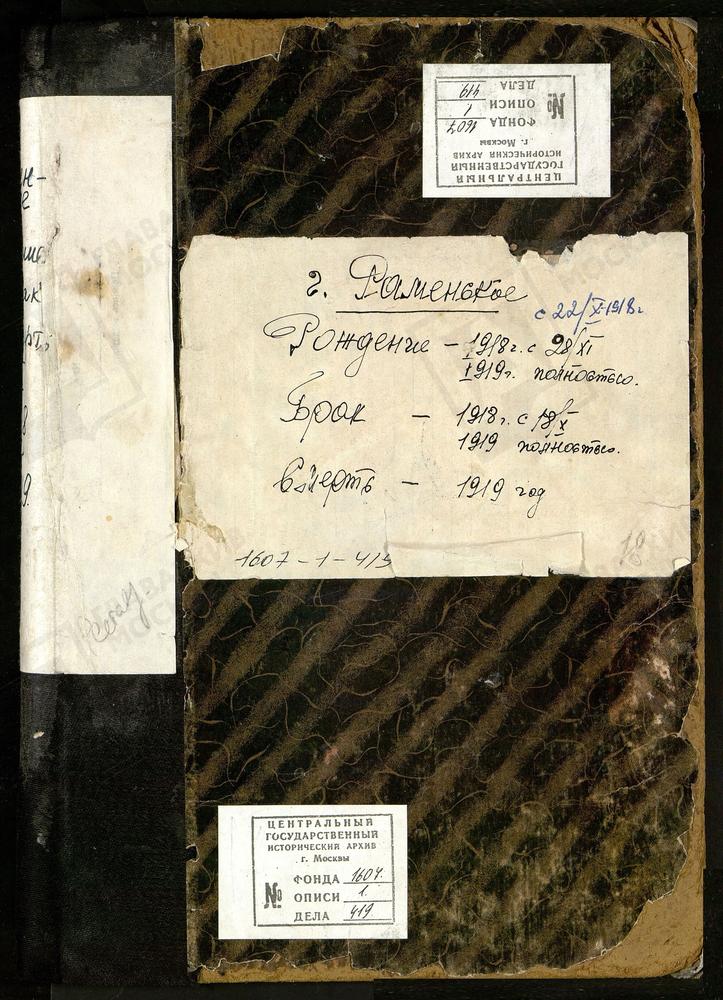 ЦЕНТРАЛЬНЫЙ
ГОСУДАРСТВЕННЫЙ
ИСТОРИЧЕСКИЙ АРХИВ
г. Москвы
№
ФОНДА 1607
ОПИСИ 1
ДЕЛА 419
г. Раменское
с 22/X-1918г
Рождение – 1918г. с 28/XI
1919г. полностью.
Брак – 1918г. с 18/X
1919 полностью.
Смерть – 1919 год
1607-1-419
18
ЦЕНТРАЛЬНЫЙ
ГОСУДАРСТВЕННЫЙ
ИСТОРИЧЕСКИЙ АРХИВ
г. Москвы
№
ФОНДА 1607.
ОПИСИ 1.
ДЕЛА 419